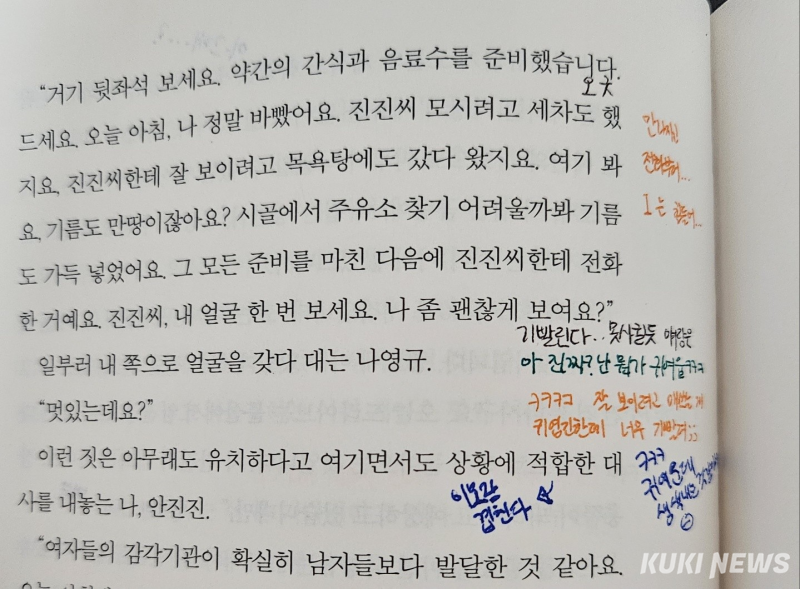 “거기 뒷좌석 보세요. 약간의 간식과 음료수를 준비했습니다.
오ㅈ
드세요. 오늘 아침, 나 정말 바빴어요. 진진씨 모시려고 세차도 했
지요, 진진씨한테 잘 보이려고 목욕탕에도 갔다 왔지요. 여기 봐
전화부터...
요, 기름도 만땅이잖아요? 시골에서 주유소 찾기 어려울까봐 기름
I 는 힘들어..
도 가득 넣었어요. 그 모든 준비를 마친 다음에 진진씨한테 전화
한 거예요. 진진씨, 내 얼굴 한 번 보세요. 나 좀 괜찮게 보여요?”
기빨린다.. 못사귈듯 얘랑은
일부러 내 쪽으로 얼굴을 갖다 대는 나영규.
아 진짜? 난 뭔가 귀여움ㅋㅋㅋ
“멋있는데요?”
ㅋㅋㅋㅋ 잘 보이려고 애쓰는게
귀엽긴한데 너무 기빨려;;
이런 짓은 아무래도 유치하다고 여기면서도 상황에 적합한 대
ㅋㅋㅋ
귀여운데
사를 내놓는 나, 안진진.
이모랑
겹친다
“여자들의 감각기관이 확실히 남자들보다 발달한 것 같아요.
KUKI NEWS